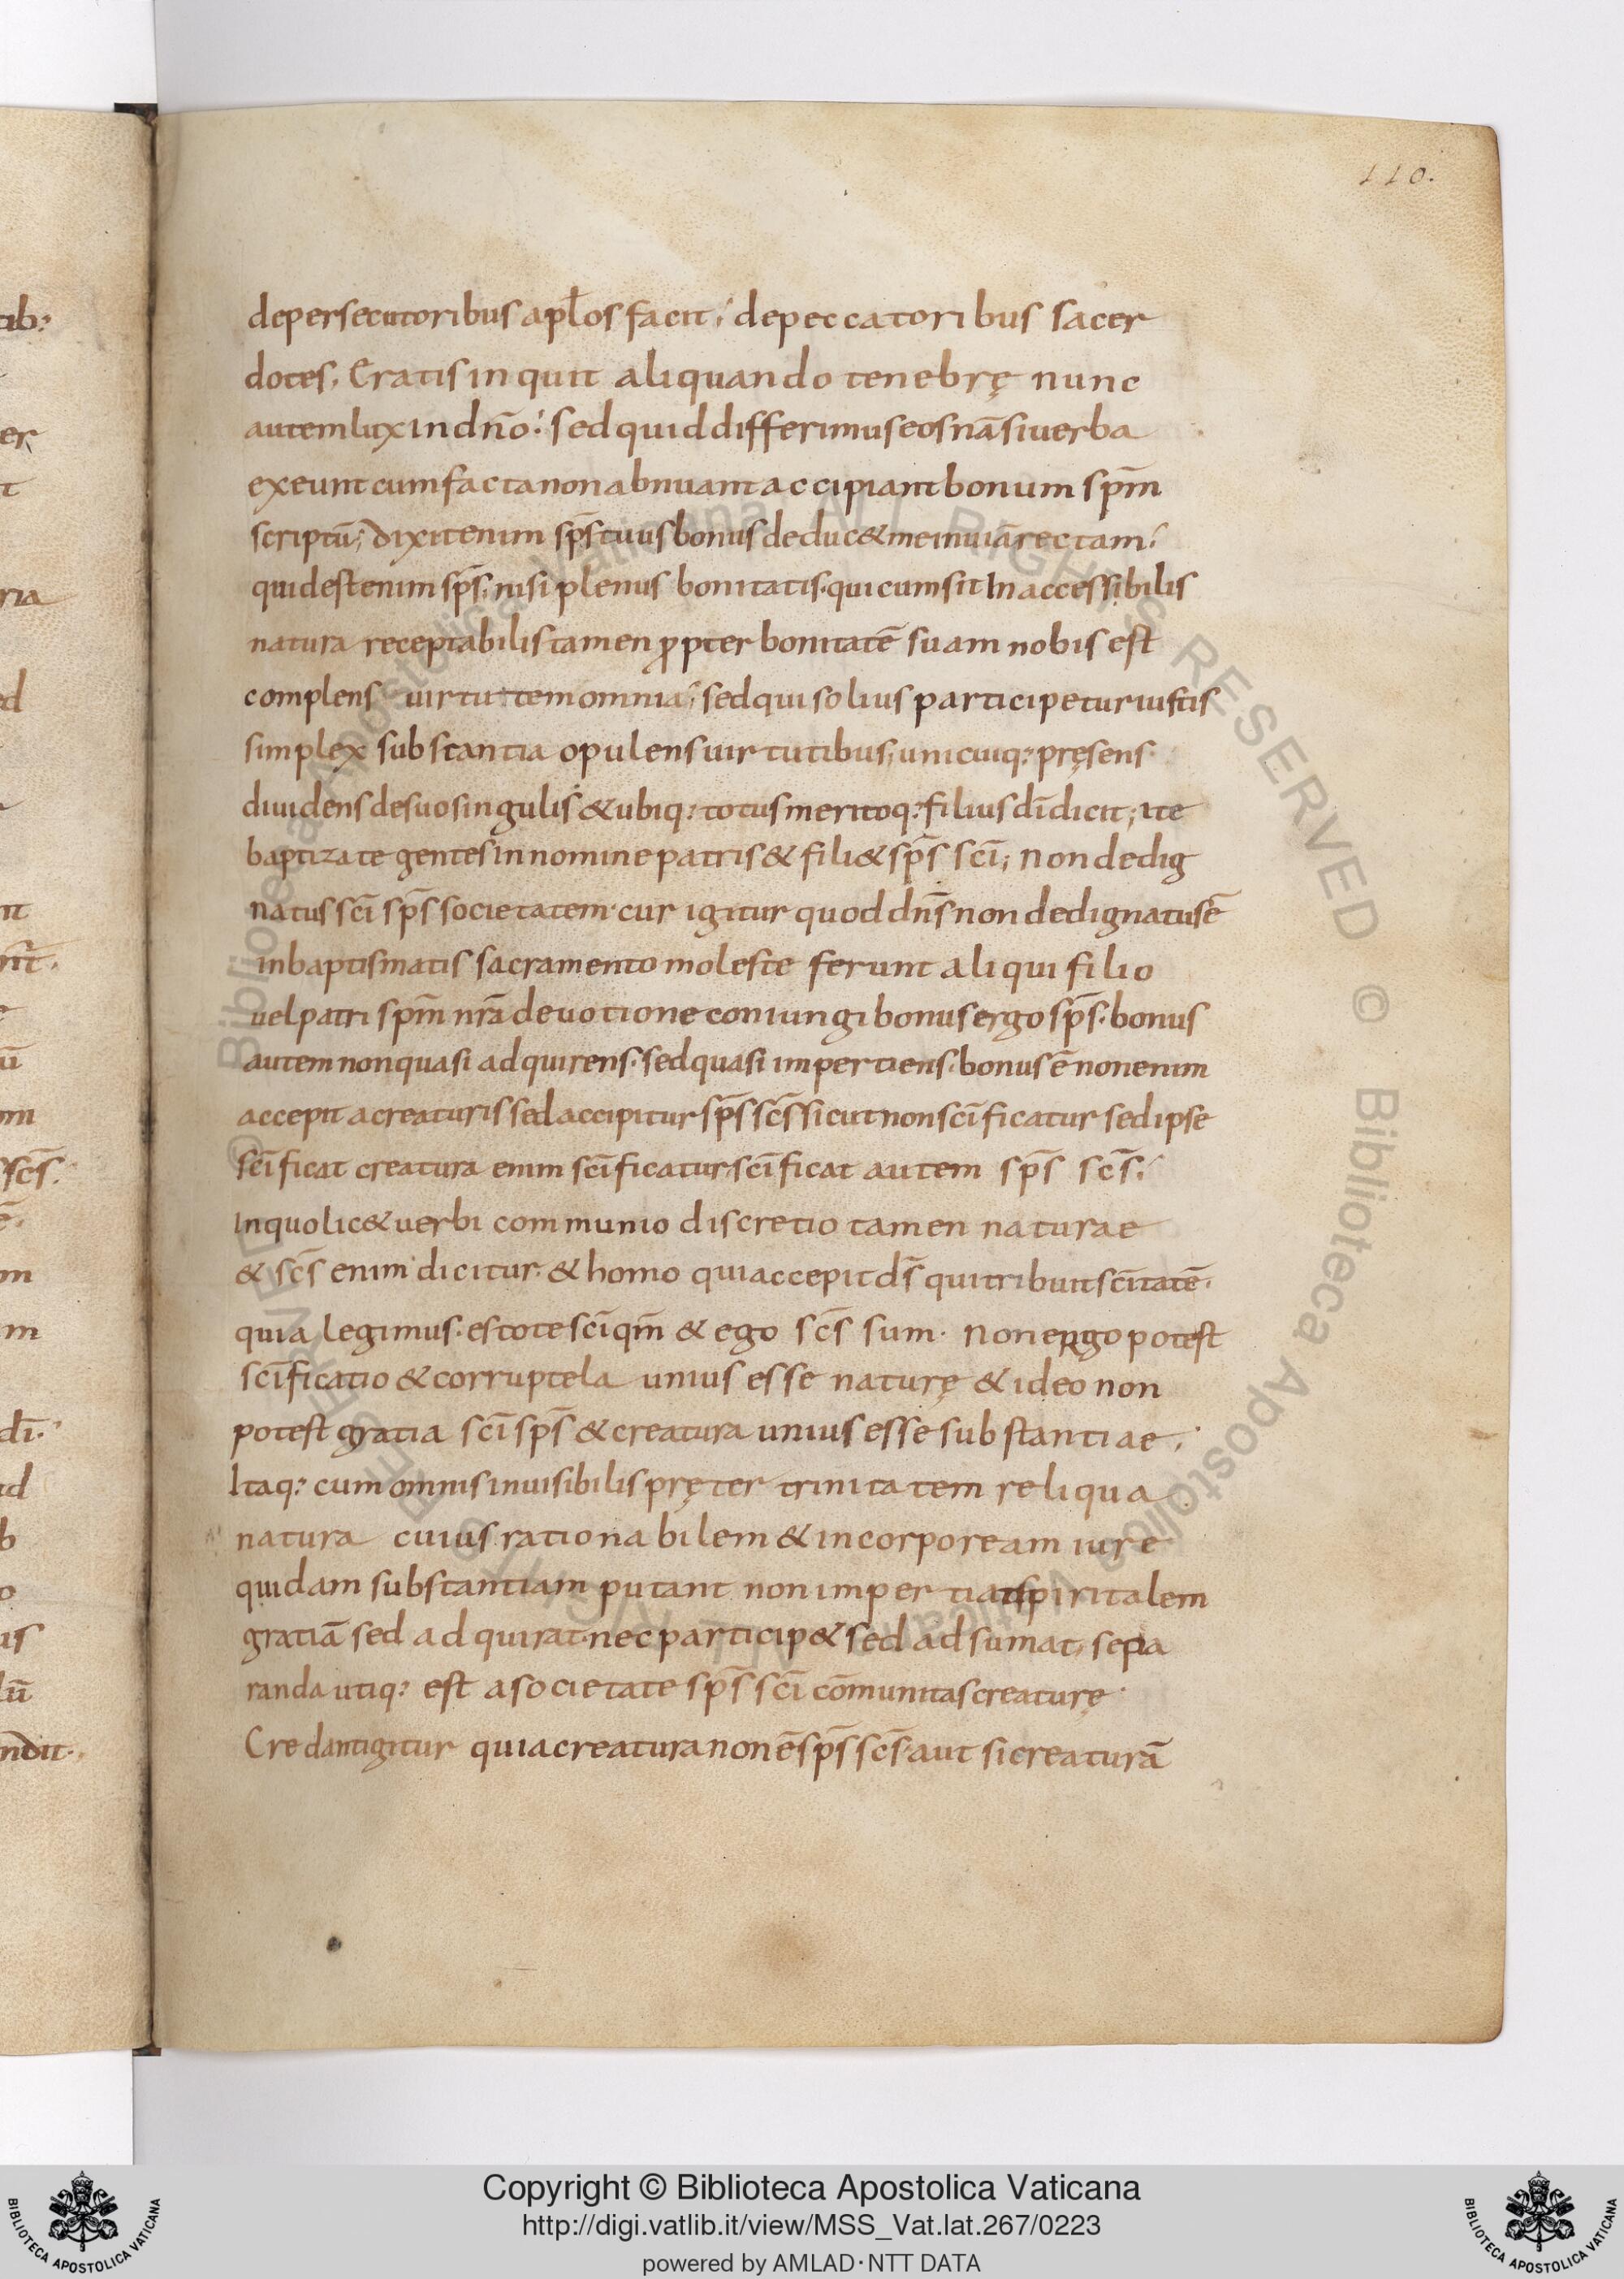 110.
depersecutoribus aplos facit; depeccatoribus sacer
dotes, Eratis inquit aliquando tenebrę nunc
autem lux in dn̄o; sed quid differimus eos nā si uerba
exeunt cum facta non abnuant accipiant bonum sp̄m
scriptū; dixit enim sp̄s tuus bonus deduc& me in uiā rectam;
quid est enim sp̄s; nisi plenus bonitatis· qui cum sit Inaccessibilis
natura receptabilis tamen ꝓpter bonitatē suam nobis est
complens uirtutem omnia; sed qui solius participetur iustis
simplex substantia opulens uirtutibus, unicuiq: pręsens·
diuidens de suo singulis & ubiq: totus meritoq: filius dī dicit; ite
baptizate gentes in nomine patris & fili & sp̄s sc̄i; non dedig
natus sc̄i sp̄s societatem· cur igitur quod dn̄s non dedignatus ē
in baptismatis sacramento moleste ferunt aliqui filio
uel patri sp̄m nr̄a deuotione coniungi bonus ergo sp̄s· bonus
autem non quasi adquirens· sed quasi impertiens· bonus ē non enim
accepit a creaturis sed accipitur sp̄s sc̄s sicut non sc̄ificatur sed ipse
sc̄ificat creatura enim sc̄ificatur, sc̄ificat autem sp̄s sc̄s;
In quo lic& uerbi communio discretio tamen naturae
& sc̄s enim dicitur· & homo qui accepit ds̄ qui tribuit sc̄itatē·
quia legimus· estote sc̄i qm̄ & ego sc̄s sum· Non ergo potest
sc̄ificatio & corruptela unius esse naturę & ideo non
potest gratia sc̄i sp̄s & creatura unius esse substantiae;
Itaq: cum omnis inuisibilis pręter trinitatem reliqua
natura cuius rationabilem & incorpoream iure
quidam substantiam putant non impertiat spiritalem
gratiā sed adquirat· nec particip& sed adsumat, sepa
randa utiq: est a societate sp̄s sc̄i cōmunitas creaturę·
Credant igitur quia creatura non ē sp̄s sc̄s· aut si creaturā
ɑib:
er
t
ria
ed
nt
ū
om
sc̄s:
ē.
m
m
dī·
id
b
o
us
lū
ndit·
© Biblioteca Apostolica Vaticana ALL RIGHTS RESERVED © Biblioteca Apostolica Vaticana ALL RIGHTS RESERVED
BIBLIOTECA APOSTOLICA VATICANA
Copyright © Biblioteca Apostolica Vaticana
http://digi.vatlib.it/view/MSS_Vat.lat.267/0223
powered by AMLAD·NTT DATA
BIBLIOTECA APOSTOLICA VATICANA